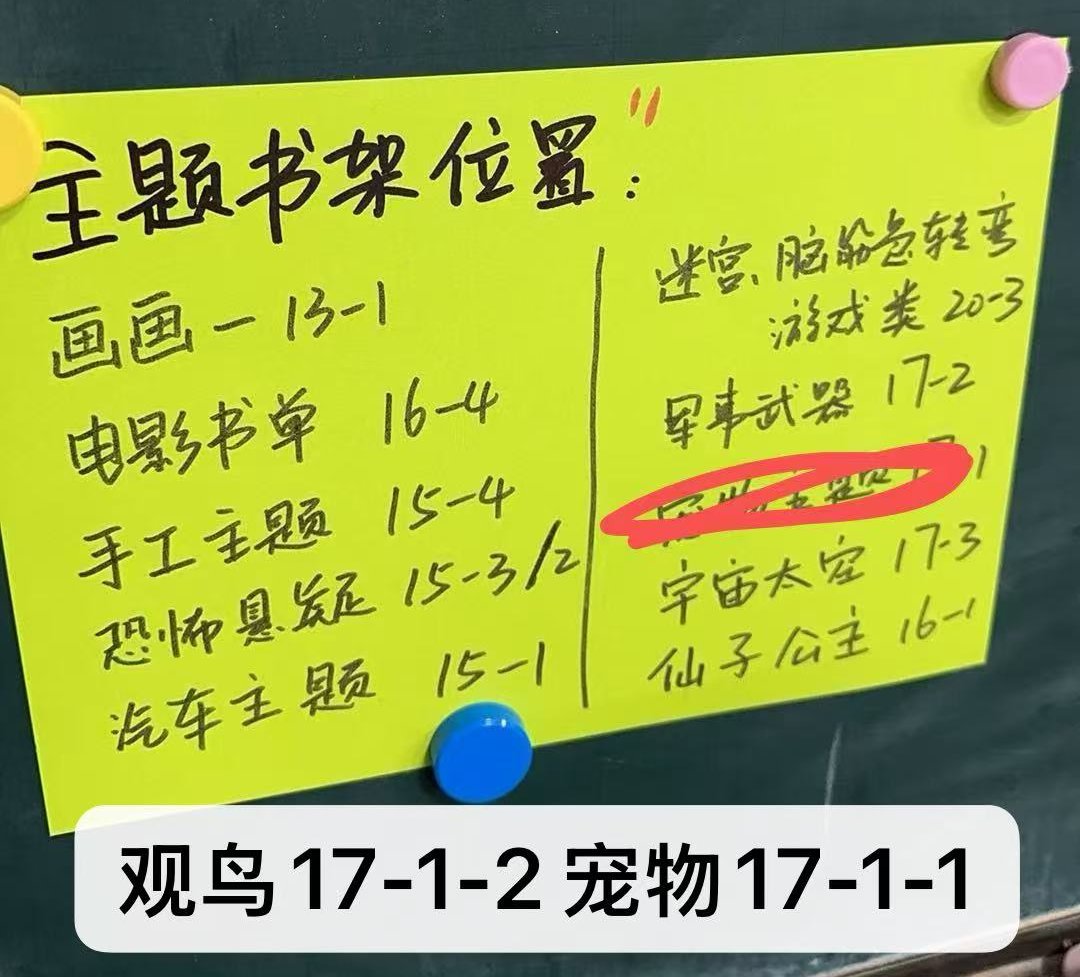 主题书架位置：
画画-13-1
电影书单 16-4
手工主题 15-4
恐怖悬疑 15-3/2
汽车主题 15-1
迷宫、脑筋急转弯
游戏类 20-3
军事武器 17-2
宇宙太空 17-3
仙子公主 16-1
观鸟17-1-2宠物17-1-1